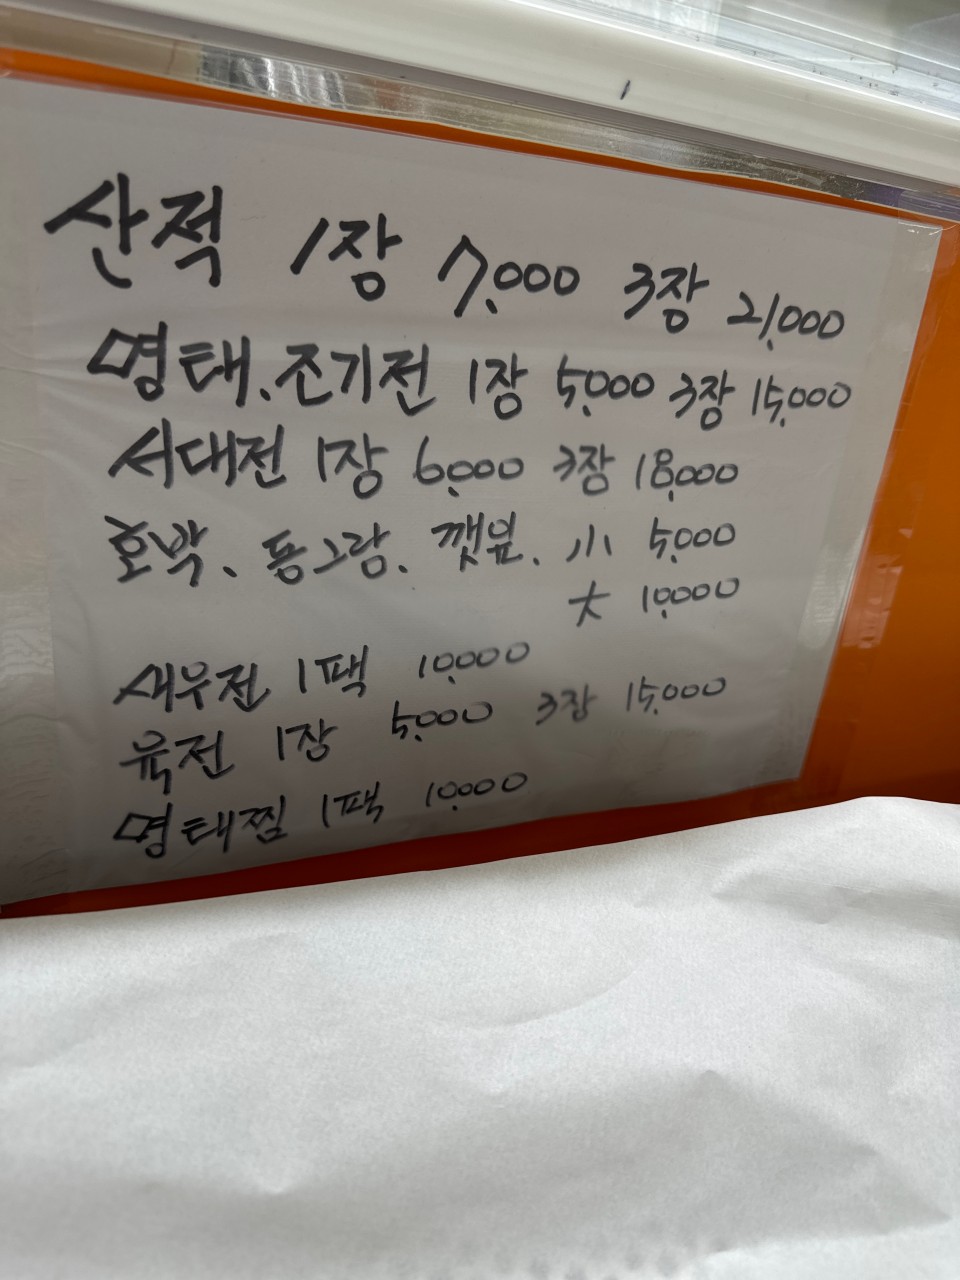 산적 1장 7,000 3장 21,000
명태.조기전 1장 5,000 3장 15,000
서대전 1장 6,000 3장 18,000
호박. 동그랑. 깻잎. 小 5,000
大 10,000
새우전 1팩 10,000
육전 1장 5,000 3장 15,000
명태찜 1팩 10,000